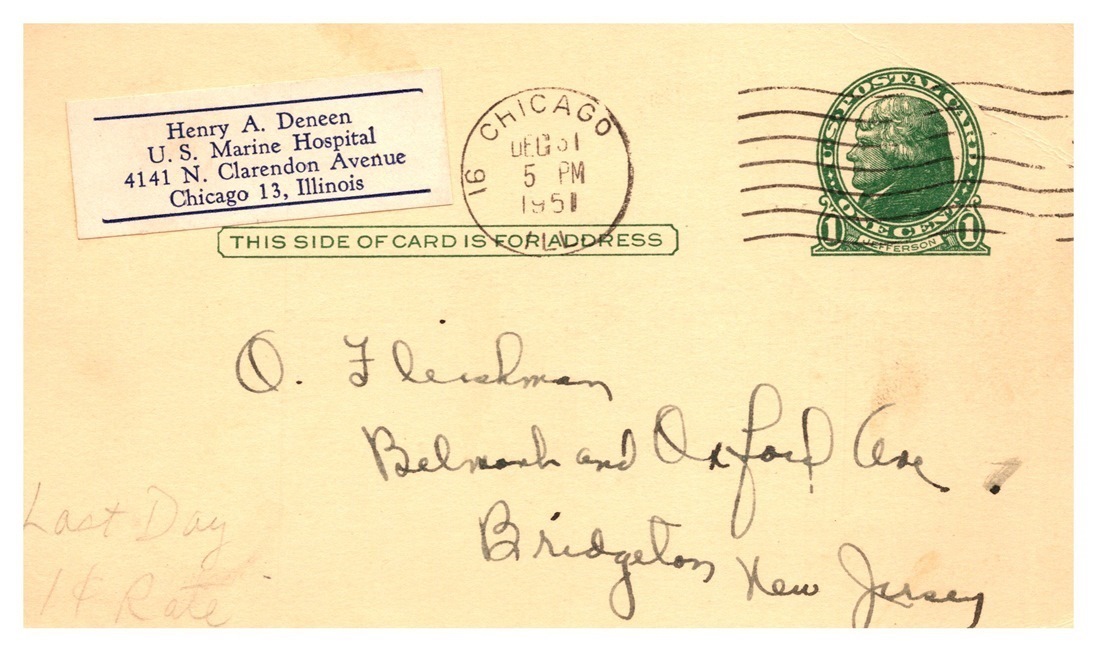 Henry A. Deneen
U. S. Marine Hospital
4141 N. Clarendon Avenue
Chicago 13, Illinois
16 CHICAGO
DEC 31
5 PM
1951
ILL.
U.S. POSTAL CARD
1 ONE CENT 1
JEFFERSON
THIS SIDE OF CARD IS FOR ADDRESS
O. Fleishman
Belmont and Oxford Ave.
Bridgeton New Jersey
Last Day
1¢ Rate